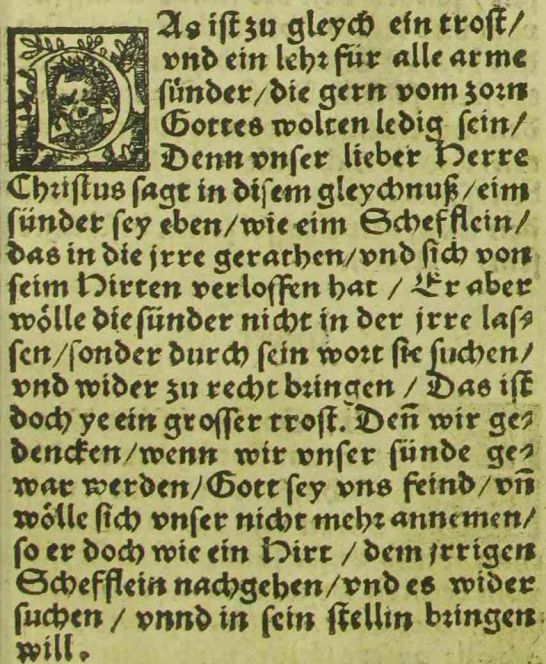 DAs ist zu gleych ein trost/
vnd ein lehr für alle arme
sünder/die gern vom zorn
Gottes wolten ledig sein/
Denn vnser lieber Herre
Christus sagt in disem gleychnuß/eim
sünder sey eben/wie eim Schefflein/
das in die jrre gerathen/vnd sich von
seim Hirten verloffen hat / Er aber
wölle die sünder nicht in der jrre las⸗
sen/sonder durch sein wort sie suchen/
vnd wider zu recht bringen / Das ist
doch ye ein grosser trost. Deñ wir ge⸗
dencken/wenn wir vnser sünde ge⸗
war werden/Gott sey vns feind/vñ
wölle sich vnser nicht mehr annemen/
so er doch wie ein Hirt / dem jrrigen
Schefflein nachgehen/vnd es wider
suchen / vnnd in sein stellin bringen
will.